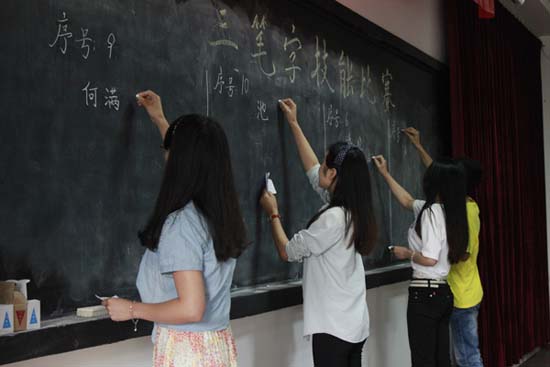 三笔字技能比赛
序号:9
何满
序号:10
池
序号: